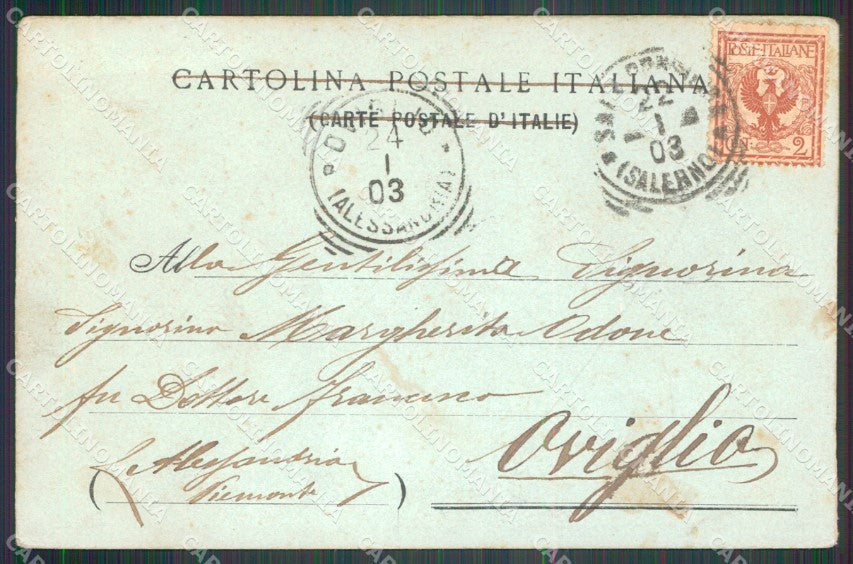 CARTOLINA POSTALE ITALIANA
(CARTE POSTALE D'ITALIE)
POSTE ITALIANE
2
22
1
03
(SALERNO)
OVIGLIO
24
1
03
(ALESSANDRIA)
Alla Gentilissima Signorina
Signorina Margherita Odone
fu Dottore Francesco
Oviglio
(Alessandria
Piemonte)
CARTOLINOMANIA